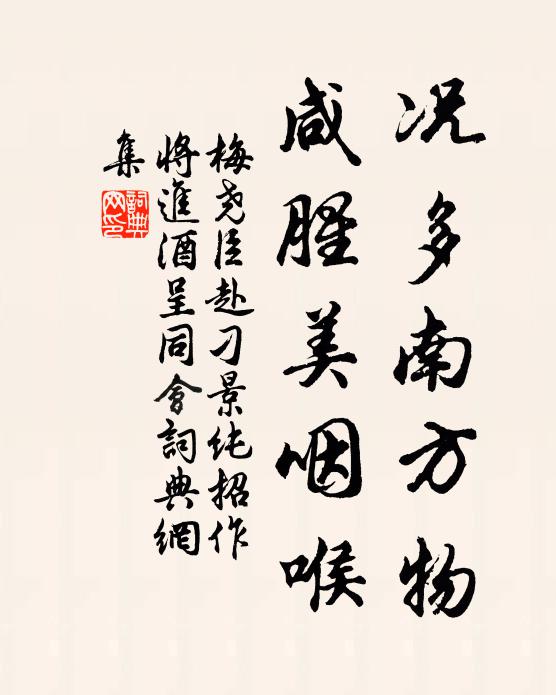 况多南方物
咸腥美咽喉
梅尧臣赴刁景纯招作
将進酒呈同會詞典網
集
詞典
网印